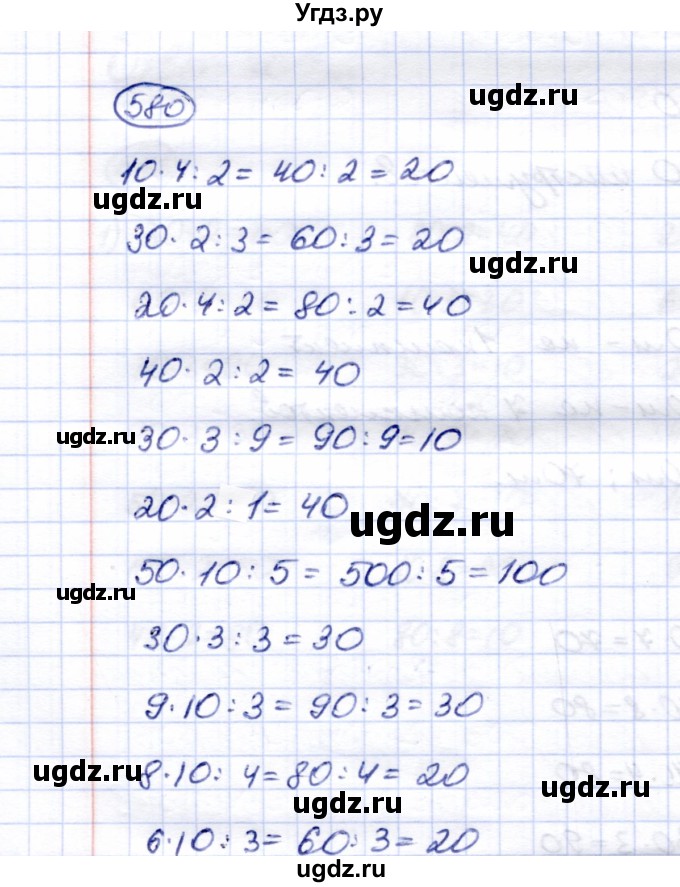 Угдз.ру
580
ugdz.ru
10·4:2= 40:2=20
ugdz.ru
30·2:3= 60:3=20
ugdz.ru
20·4:2= 80:2=40
40·2:2= 40
ugdz.ru 30·3:9= 90:9=10
20·2:1= 40
ugdz.ru
50·10:5= 500:5=100
ugdz.ru
30·3:3=30
9·10:3= 90:3=30
ugdz.ru 8·10:4=80:4=20
ugdz.ru
ugdz.ru
6·10:3= 60:3=20
ugdz.ru